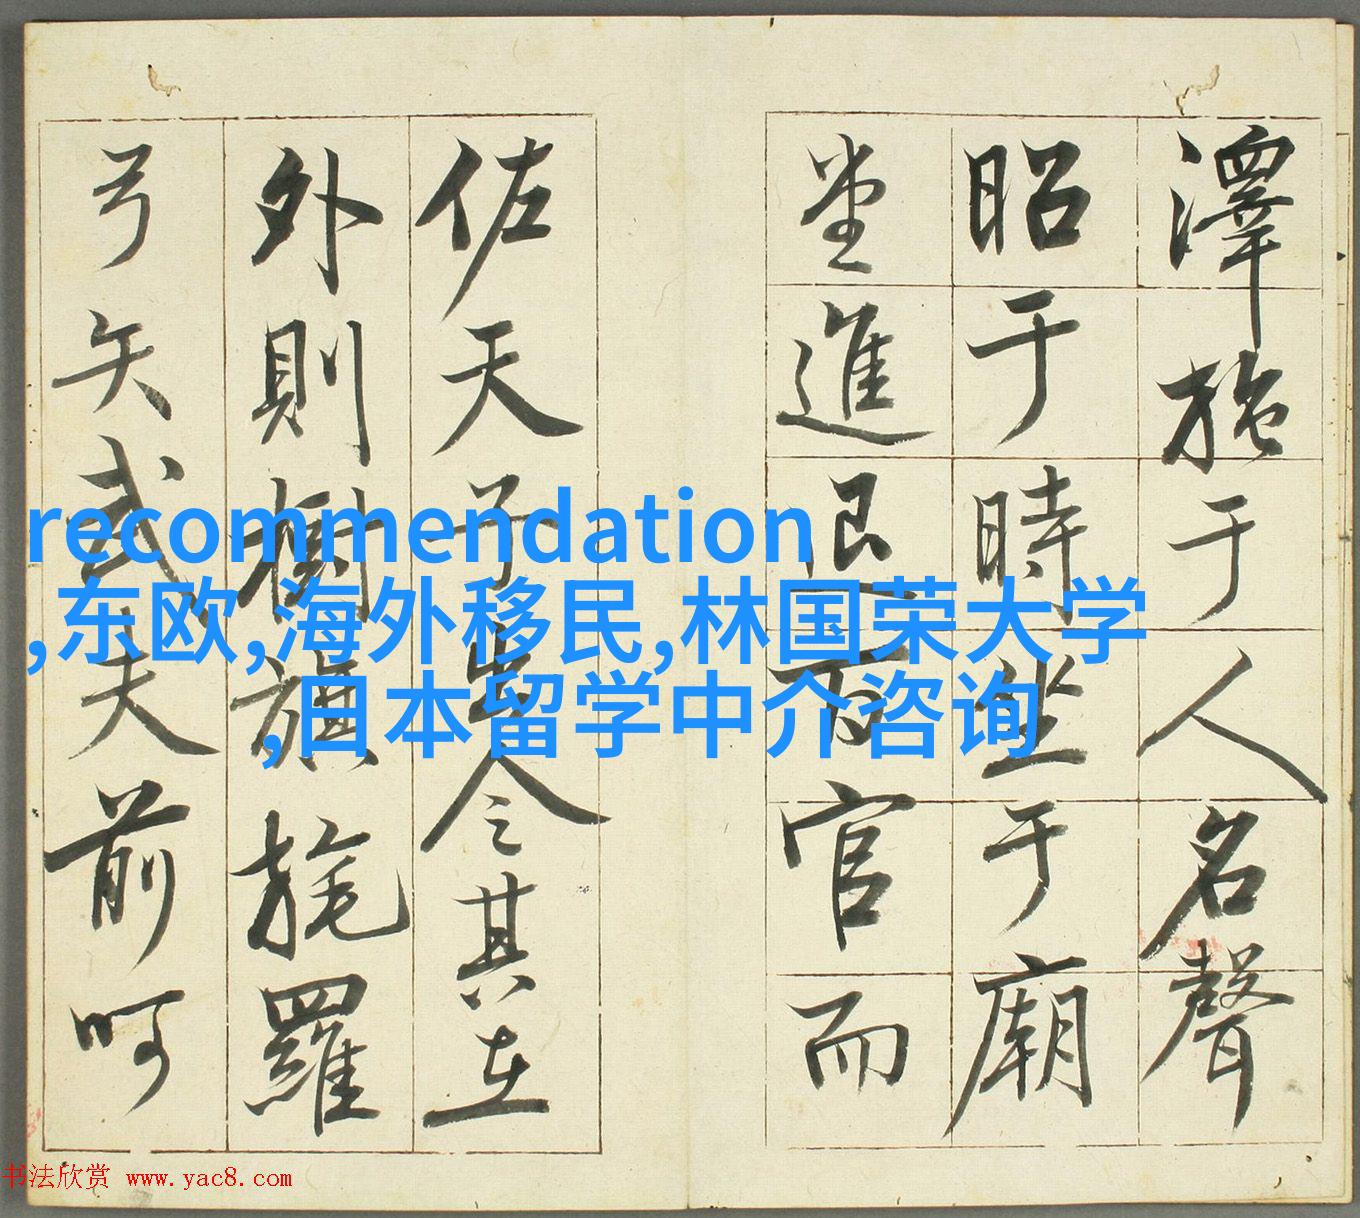 澤施于人名聲
昭于時坐于廟
堂進退百官而
佐天子出令其在
外則樹旗旄羅
弓矢武夫前呵
recommendation
,东欧,海外移民,林国荣大学
,日本留学中介咨询
书法欣赏 www.yac8.com